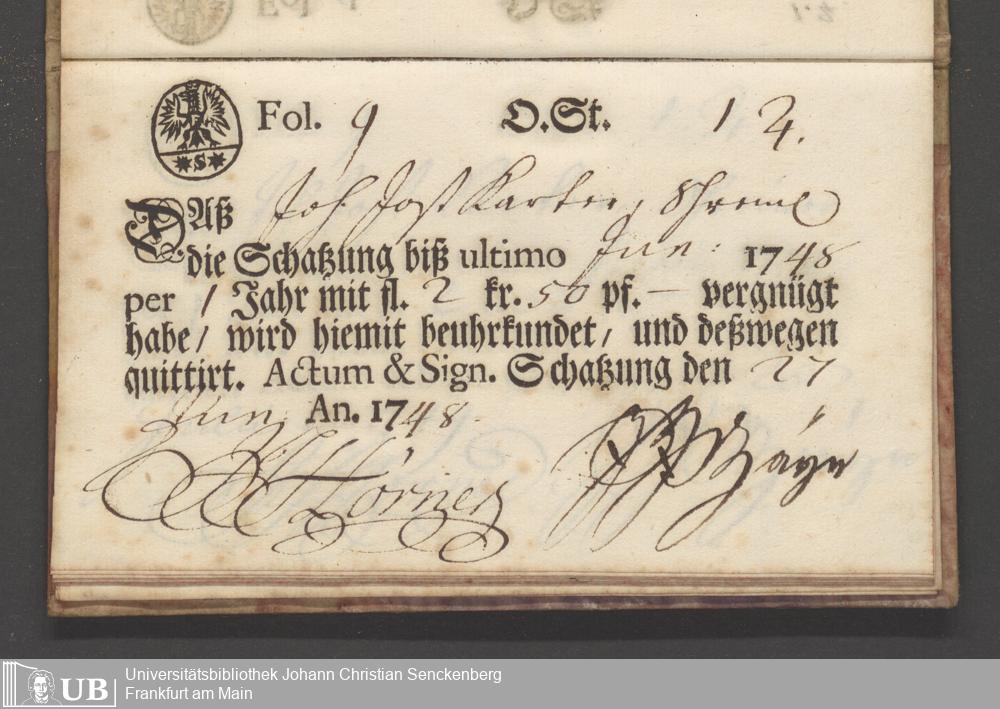 Fol. 9 O.St. 12.
S
Daß Joh Jost Karter, Schreine
die Schatzung biß ultimo Jun: 1748
per 1 Jahr mit fl. 2 kr. 50 pf. — vergnügt
habe / wird hiemit beuhrkundet / und deßwegen
quittirt. Actum & Sign. Schatzung den 27
Jun An. 1748.
Hörner
UB
Universitätsbibliothek Johann Christian Senckenberg
Frankfurt am Main